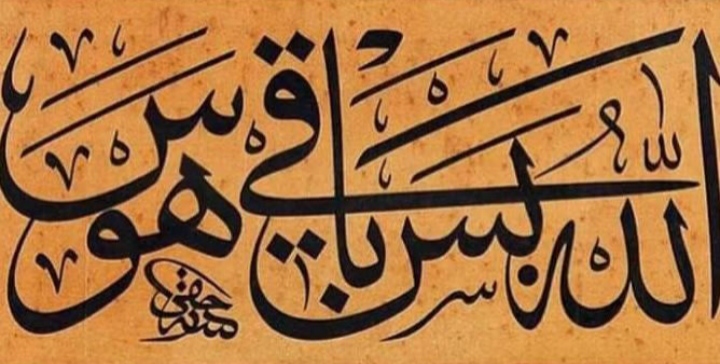 الله بس باقی هوس